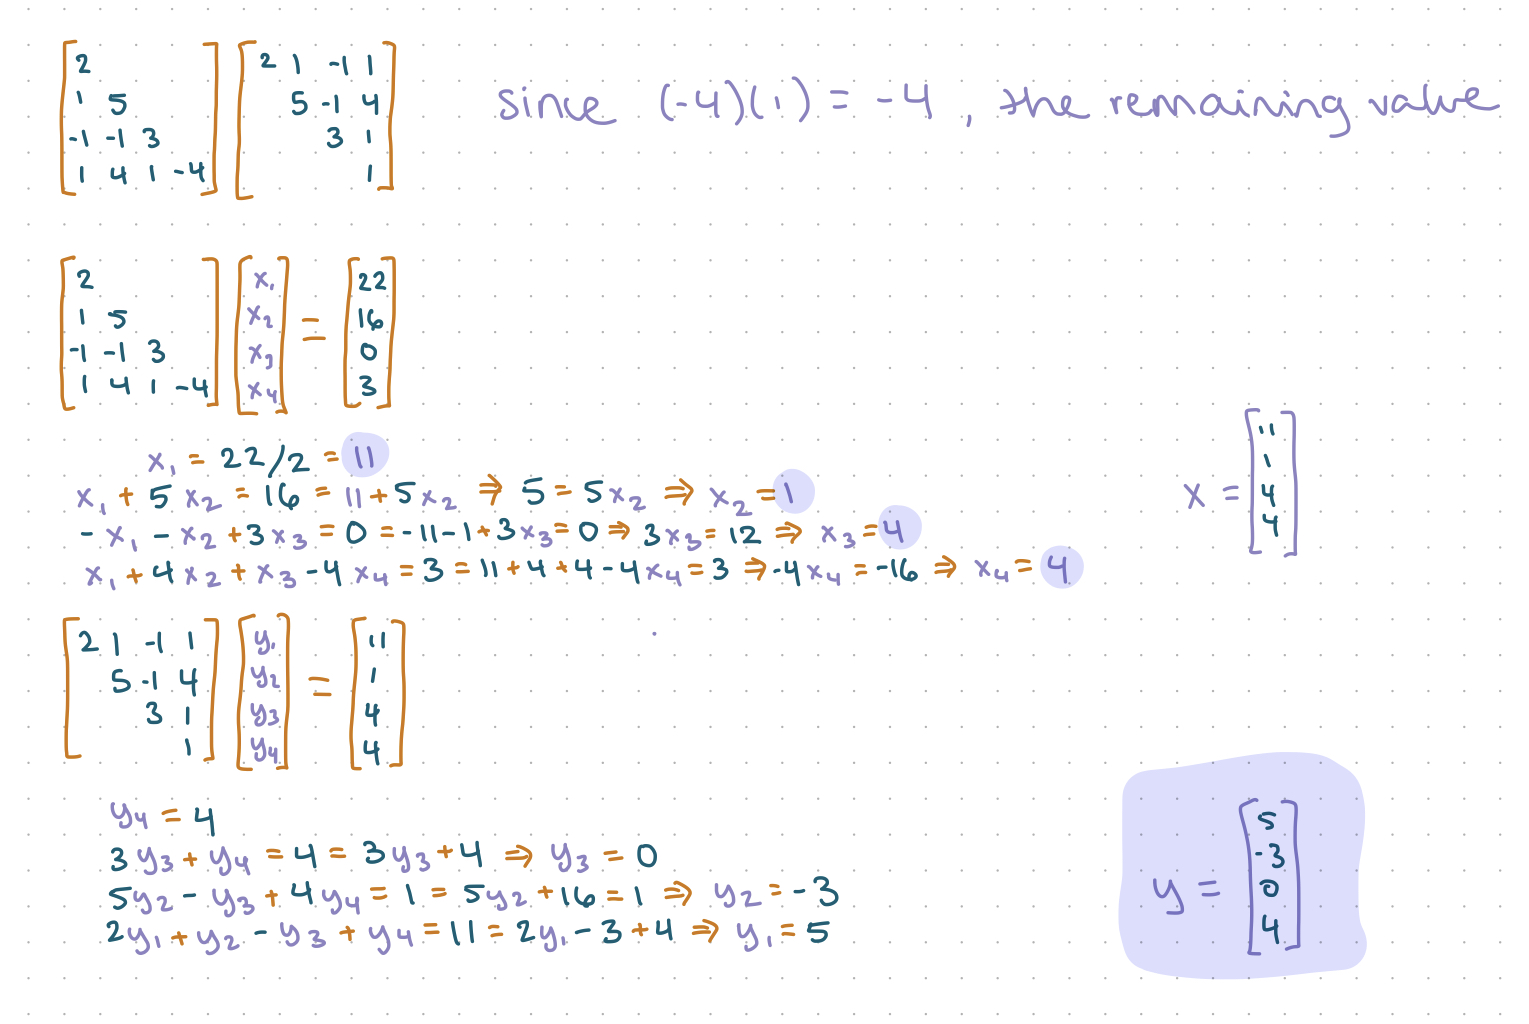 2 2 1 -1 1
1 5 5 -1 4 since (-4)(1) = -4, the remaining value
-1 -1 3 3 1
1 4 1 -4 1
2 x₁ 22
1 5 x₂ = 16
-1 -1 3 x₃ 0
1 4 1 -4 x₄ 3
x₁ = 22/2 = 11
x₁ + 5x₂ = 16 = 11 + 5x₂ ⇒ 5 = 5x₂ ⇒ x₂ = 1
-x₁ - x₂ + 3x₃ = 0 = -11 - 1 + 3x₃ = 0 ⇒ 3x₃ = 12 ⇒ x₃ = 4
x₁ + 4x₂ + x₃ - 4x₄ = 3 = 11 + 4 + 4 - 4x₄ = 3 ⇒ -4x₄ = -16 ⇒ x₄ = 4
11
1
x = 4
4
2 1 -1 1 y₁ 11
5 -1 4 y₂ = 1
3 1 y₃ 4
1 y₄ 4
y₄ = 4
3y₃ + y₄ = 4 = 3y₃ + 4 ⇒ y₃ = 0
5y₂ - y₃ + 4y₄ = 1 = 5y₂ + 16 = 1 ⇒ y₂ = -3
2y₁ + y₂ - y₃ + y₄ = 11 = 2y₁ - 3 + 4 ⇒ y₁ = 5
5
-3
y = 0
4